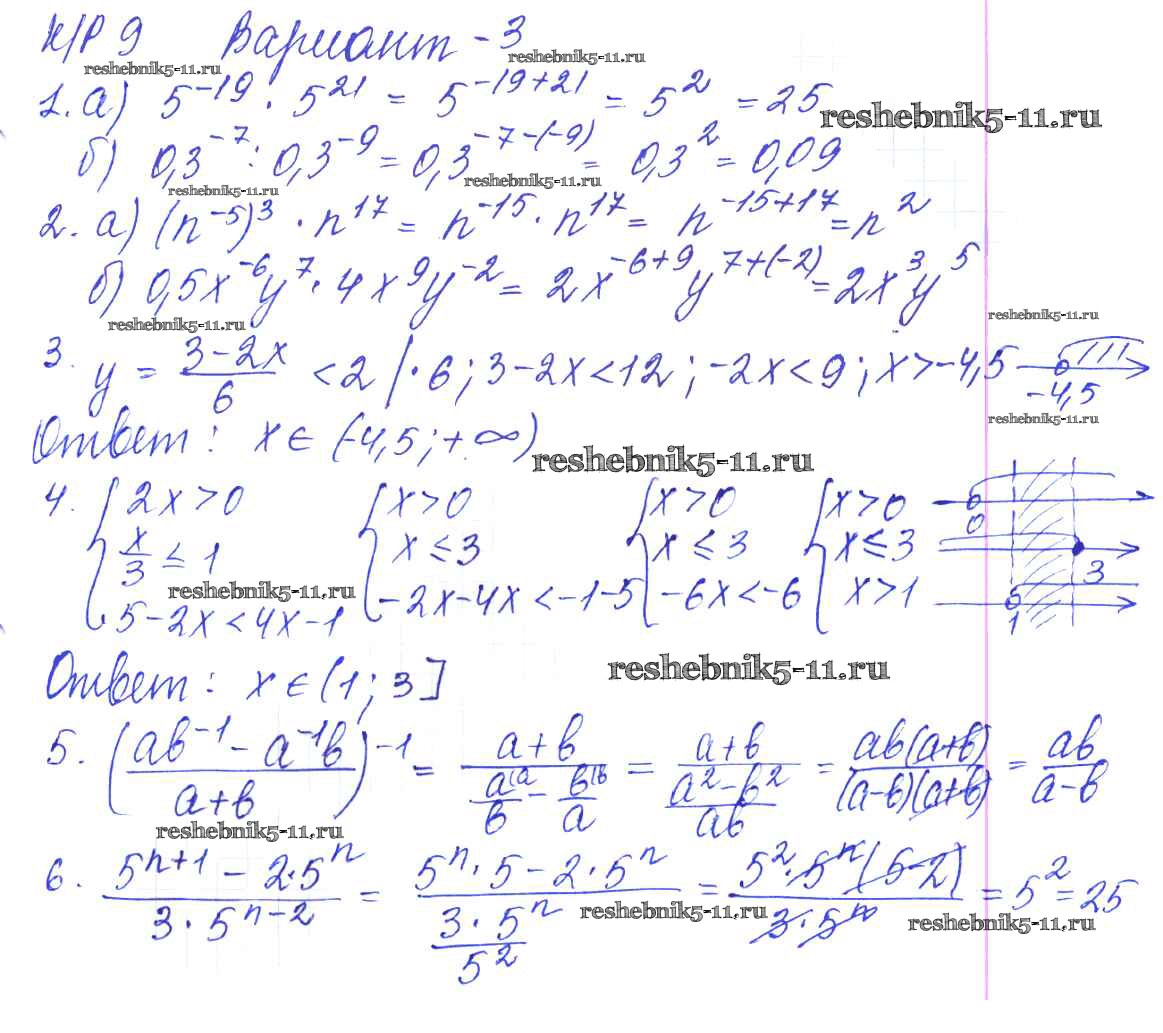 К/Р 9 Вариант - 3
reshebnik5-11.ru reshebnik5-11.ru
1. а) 5^-19 · 5^21 = 5^(-19+21) = 5^2 = 25 reshebnik5-11.ru
б) 0,3^-7 : 0,3^-9 = 0,3^(-7-(-9)) = 0,3^2 = 0,09
reshebnik5-11.ru reshebnik5-11.ru
2. а) (n^-5)^3 · n^17 = n^-15 · n^17 = n^(-15+17) = n^2
б) 0,5x^-6 y^7 · 4x^9 y^-2 = 2x^(-6+9) y^(7+(-2)) = 2x^3 y^5
reshebnik5-11.ru reshebnik5-11.ru
3. y = (3-2x)/6 < 2 | · 6 ; 3-2x < 12 ; -2x < 9 ; x > -4,5 -4,5
reshebnik5-11.ru
Ответ : x ∈ (-4,5 ; +∞) reshebnik5-11.ru
4. { 2x > 0 { x > 0 { x > 0 { x > 0 0
x/3 ≤ 1 x ≤ 3 x ≤ 3 x ≤ 3 3
reshebnik5-11.ru
5-2x < 4x-1 -2x-4x < -1-5 -6x < -6 x > 1 1
Ответ : x ∈ (1 ; 3] reshebnik5-11.ru
5. ((ab^-1 - a^-1 b)/(a+b))^-1 = (a+b)/(a^(a/b - b^(b/a) = (a+b)/((a^2-b^2)/ab) = ab(a+b)/((a-b)(a+b)) = ab/(a-b)
reshebnik5-11.ru
6. (5^(n+1) - 2·5^n)/(3·5^(n-2)) = (5^n · 5 - 2·5^n)/((3·5^n)/5^2) = (5^2 · 5^n (5-2))/(3·5^n) = 5^2 = 25
reshebnik5-11.ru reshebnik5-11.ru